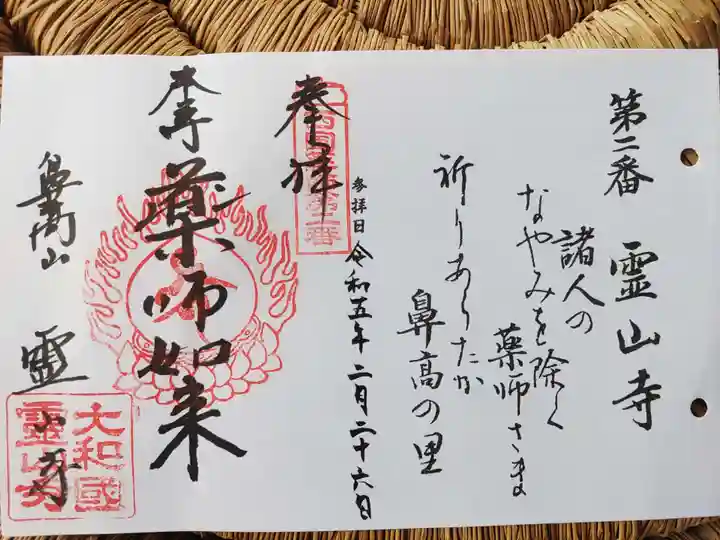 第二番 霊山寺
諸人の
なやみを除く
薬師さま
祈りあらたか
鼻高の里
奉拝
参拝日 令和五年二月二十六日
薬師如来
鼻高山
霊山寺
大和國
霊山寺